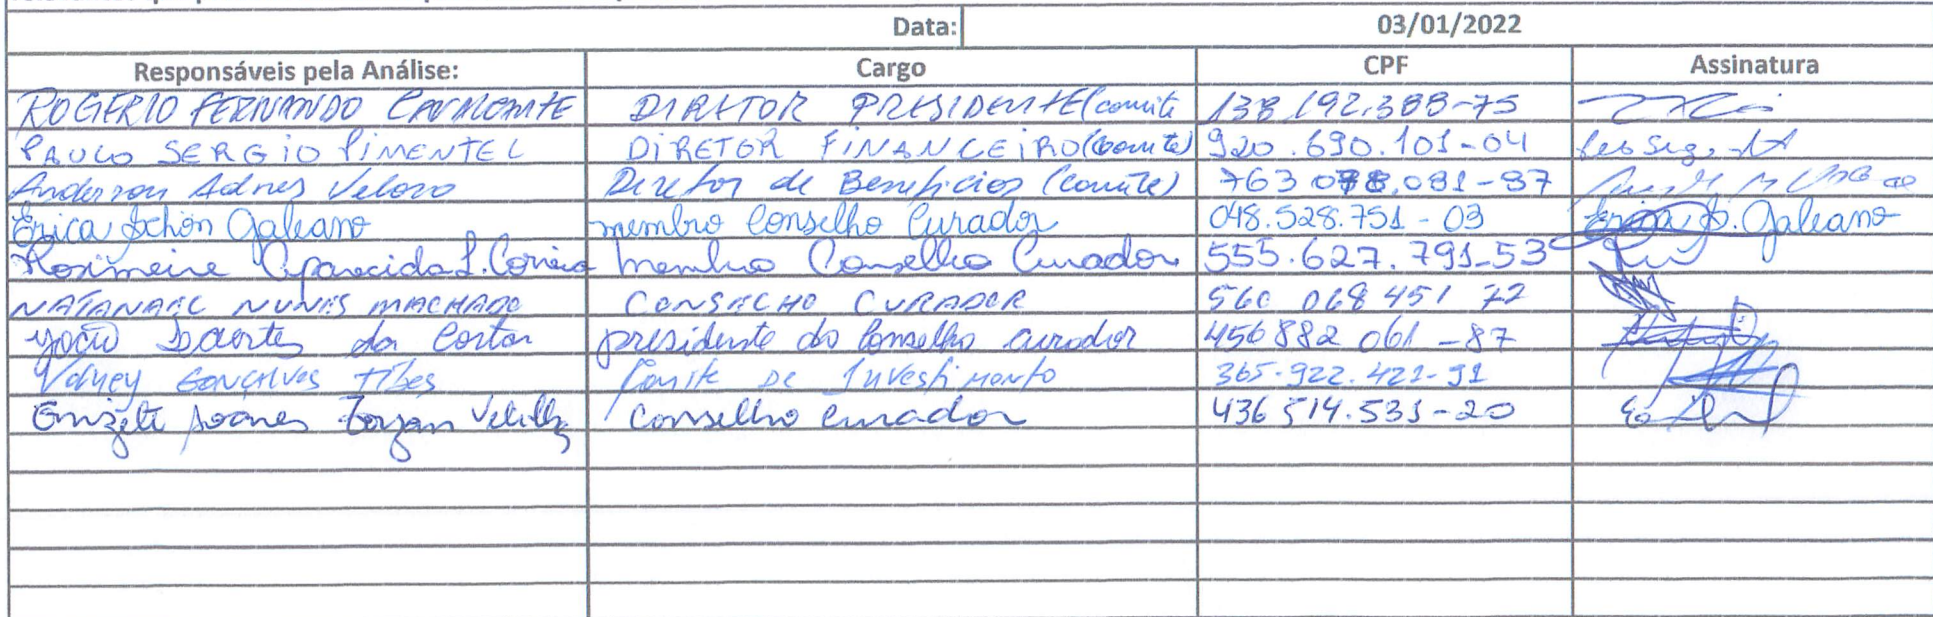 Data: 03/01/2022
Responsáveis pela Análise: Cargo CPF Assinatura
ROGÉRIO FERNANDO CAVALCANTE DIRETOR PRESIDENTE (comite 138.192.388-75
PAULO SERGIO PIMENTEL DIRETOR FINANCEIRO (comite) 920.690.101-04
Anderson Adnes Veloso Diretor de Beneficios (comite) 763 078.081-87
Erica Jchön Galeano membro Conselho Curador 048.528.751-03 Erica J. Galeano
Rosimeire Aparecida L. Correia Membro Conselho Curador 555.627.791-53
NATANAEL NUNES MACHADO CONSELHO CURADOR 560 068 451 72
João Duertes da Costa presidente do Conselho curador 456 882 061-87
Volney GONÇALVES TIBES Comite DE Investimento 365.922.421-91
Soares Conselho Curador 436 514.531-20